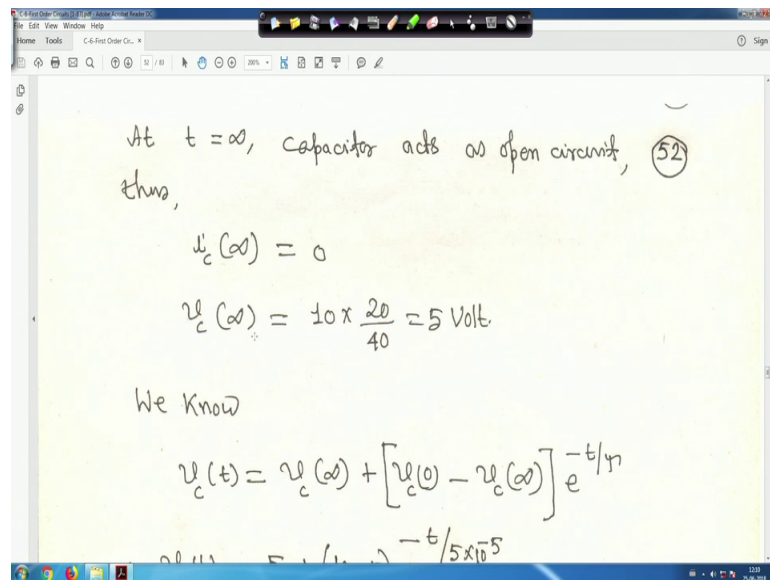 C-6-First Order Circuits [1-83].pdf - Adobe Acrobat Reader DC
File Edit View Window Help
Home Tools C-6-First Order Cir... × Sign
52 / 83 200%
At t = ∞, capacitor acts as open circuit, 52
thus,
i_c(∞) = 0
v_c(∞) = 10 x 20/40 = 5 Volt.
We know
v_c(t) = v_c(∞) + [v_c(0) - v_c(∞)] e^{-t/τ}
-t/5x10^{-5}
12:10